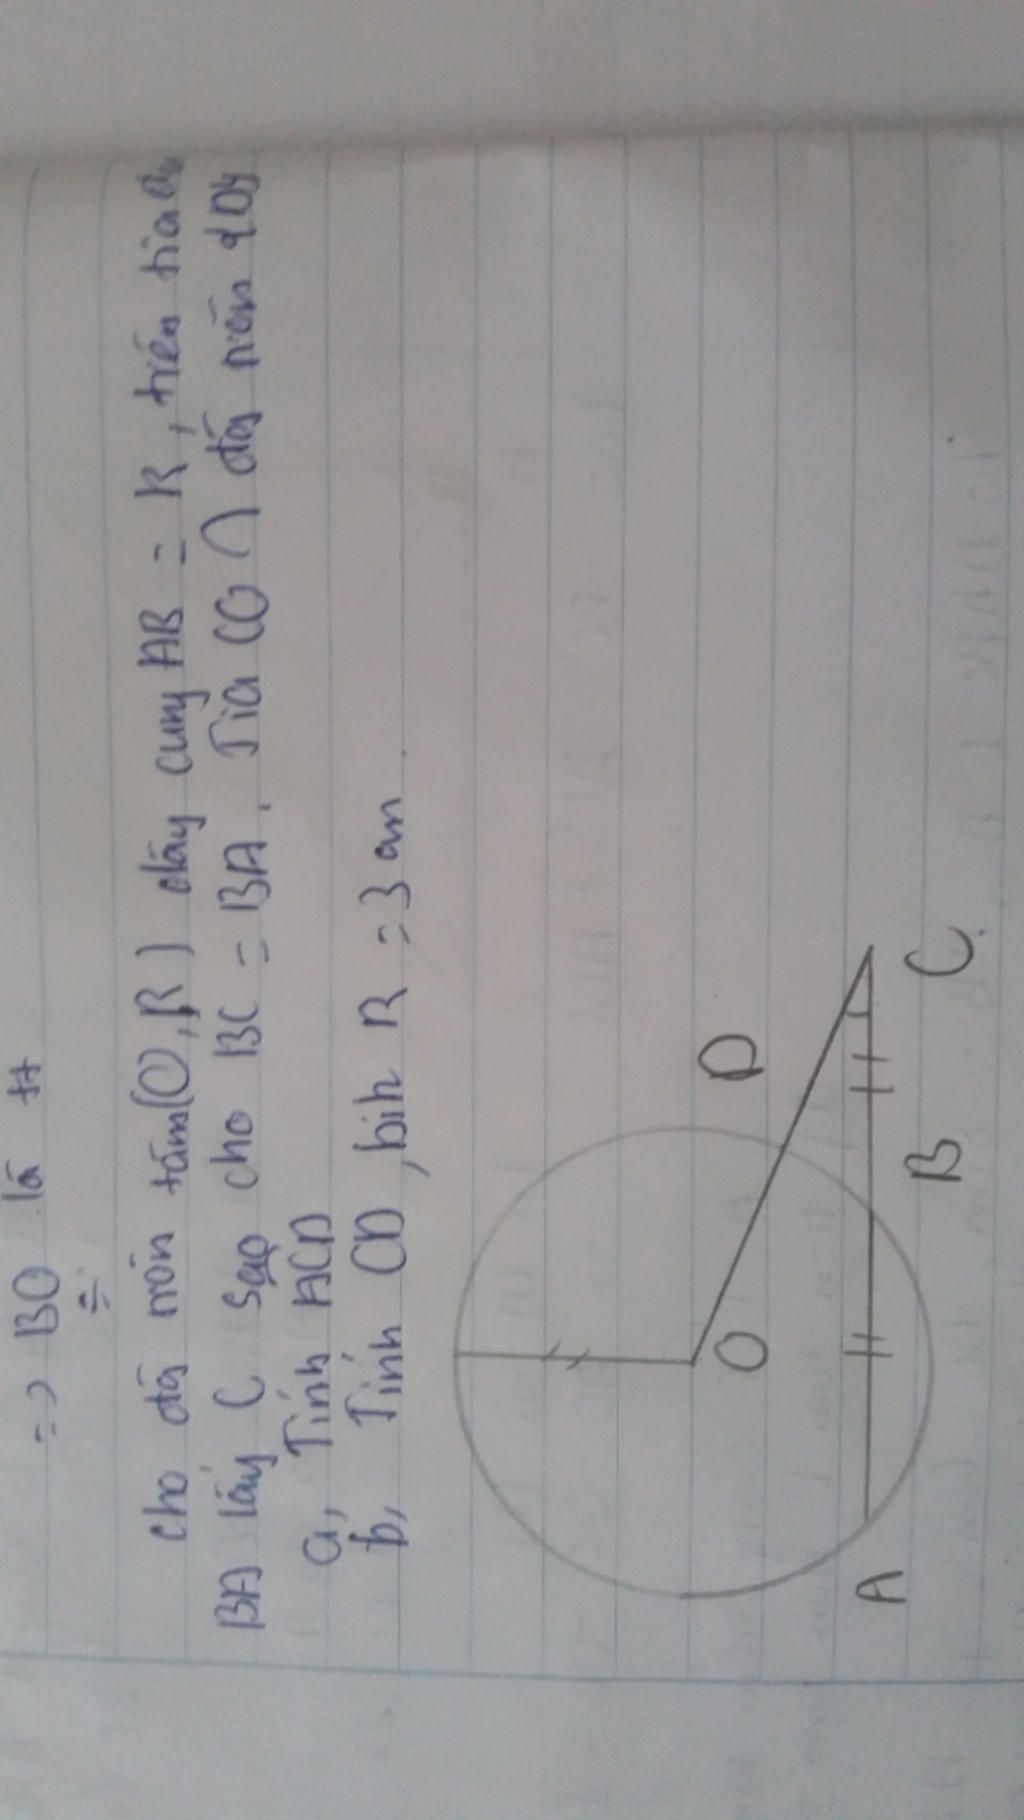 => BO là tt
cho đg tròn tâm (O, R) dây cung AB = R, trên tia đối
BA lấy C sao cho BC = BA. Tia CO ∩ đg tròn tại D
a, Tính ACD
b, Tính CD, biết R = 3 cm.
D
O
A B C